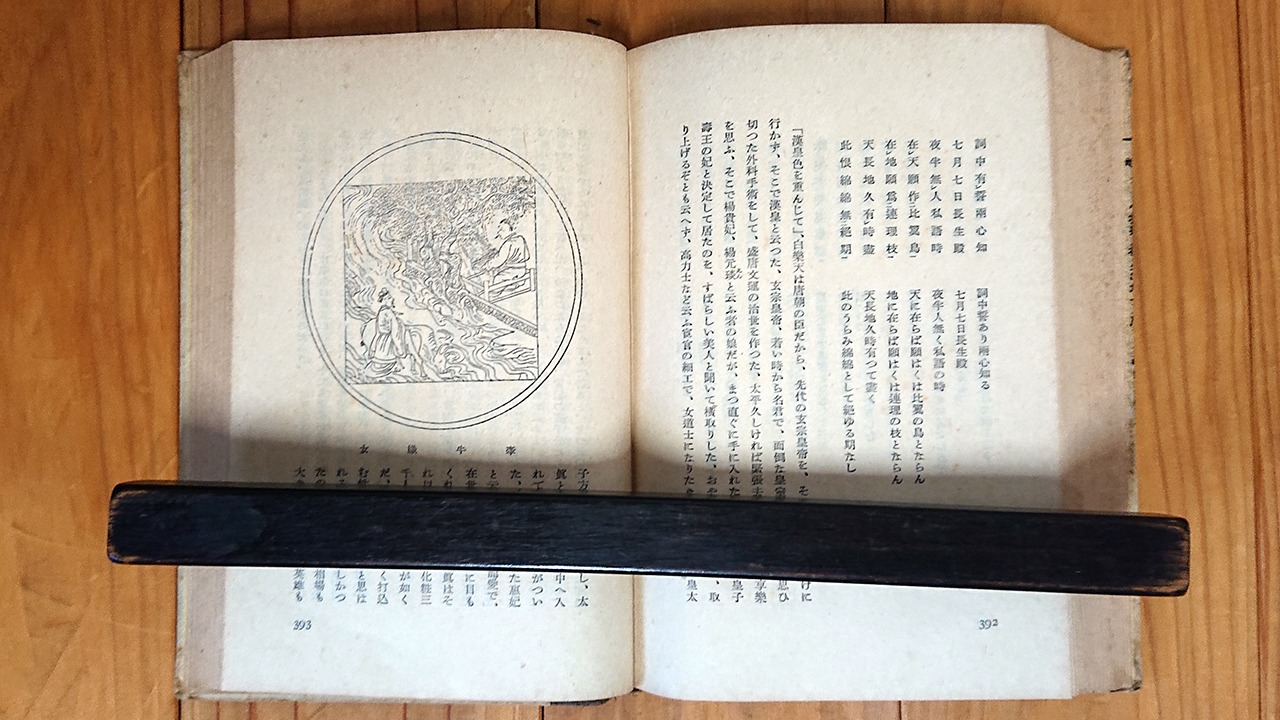 詞中有誓兩心知
七月七日長生殿
夜半無人私語時
在天願作比翼鳥
在地願爲連理枝
天長地久有時盡
此恨綿綿無絕期
詞中誓あり兩心知る
七月七日長生殿
夜半人無く私語の時
天に在らば願はくは比翼の鳥とならん
地に在らば願はくは連理の枝とならん
天長地久時有つて盡く
此のうらみ綿綿として絕ゆる期なし
「漢皇色を重んじて」、白樂天は唐朝の臣だから、先代の玄宗皇帝を、そ
けに
行かず、そこで漢皇と云つた、玄宗皇帝、若い時から名君で、面倒な皇室
思ひ
切つた外科手術をして、盛唐文運の治世を作つた、太平久しければ緊張去
享樂
を思ふ、そこで楊貴妃、楊元琰と云ふ者の娘だが、まつ直ぐに手に入れた
皇子
壽王の妃と決定して居たのを、すばらしい美人と聞いて橫取りした、おや
、取
り上げるぞとも云へず、高力士など云ふ宦官の細工で、女道士になりたき
皇太
392
牽牛織女
子方
し、太
眞と
中へ入
れて
がつい
た、
た惠妃
と云
寵愛で、
在世
に目も
くれ
眞はそ
れ以
化粧三
千人
が如く
だ、
く打込
む性
と思は
れる
しかつ
たの
相場も
大き
英雄も
393